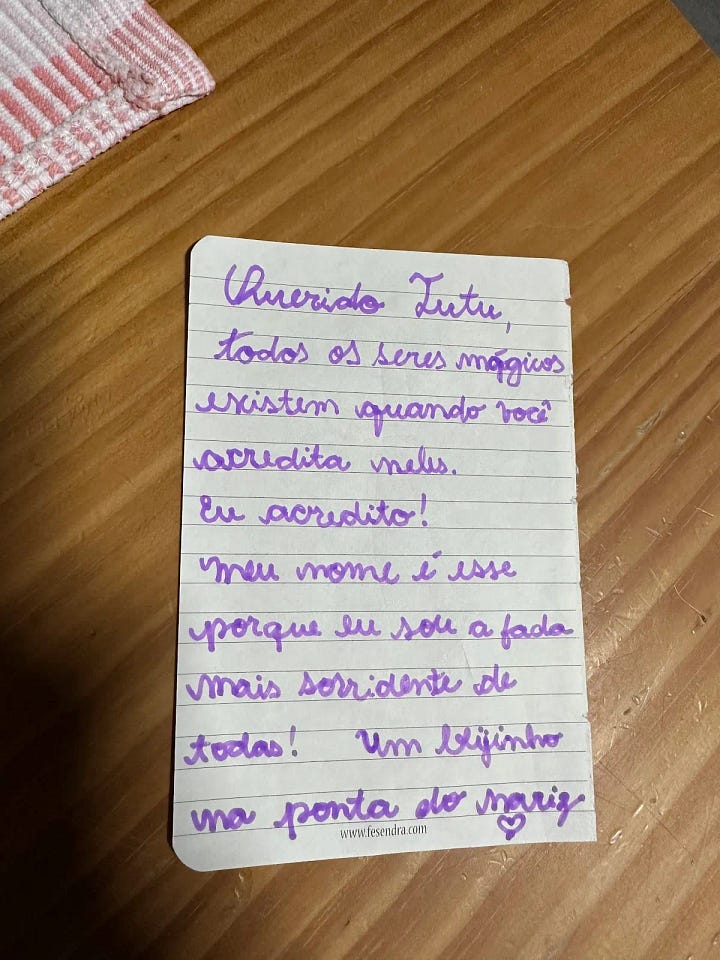 Querido Tutu,
todos os seres mágicos
existem quando você
acredita neles.
Eu acredito!
Meu nome é esse
porque eu sou a fada
mais sorridente de
todas! Um beijinho
na ponta do nariz
♡
www.fesendra.com